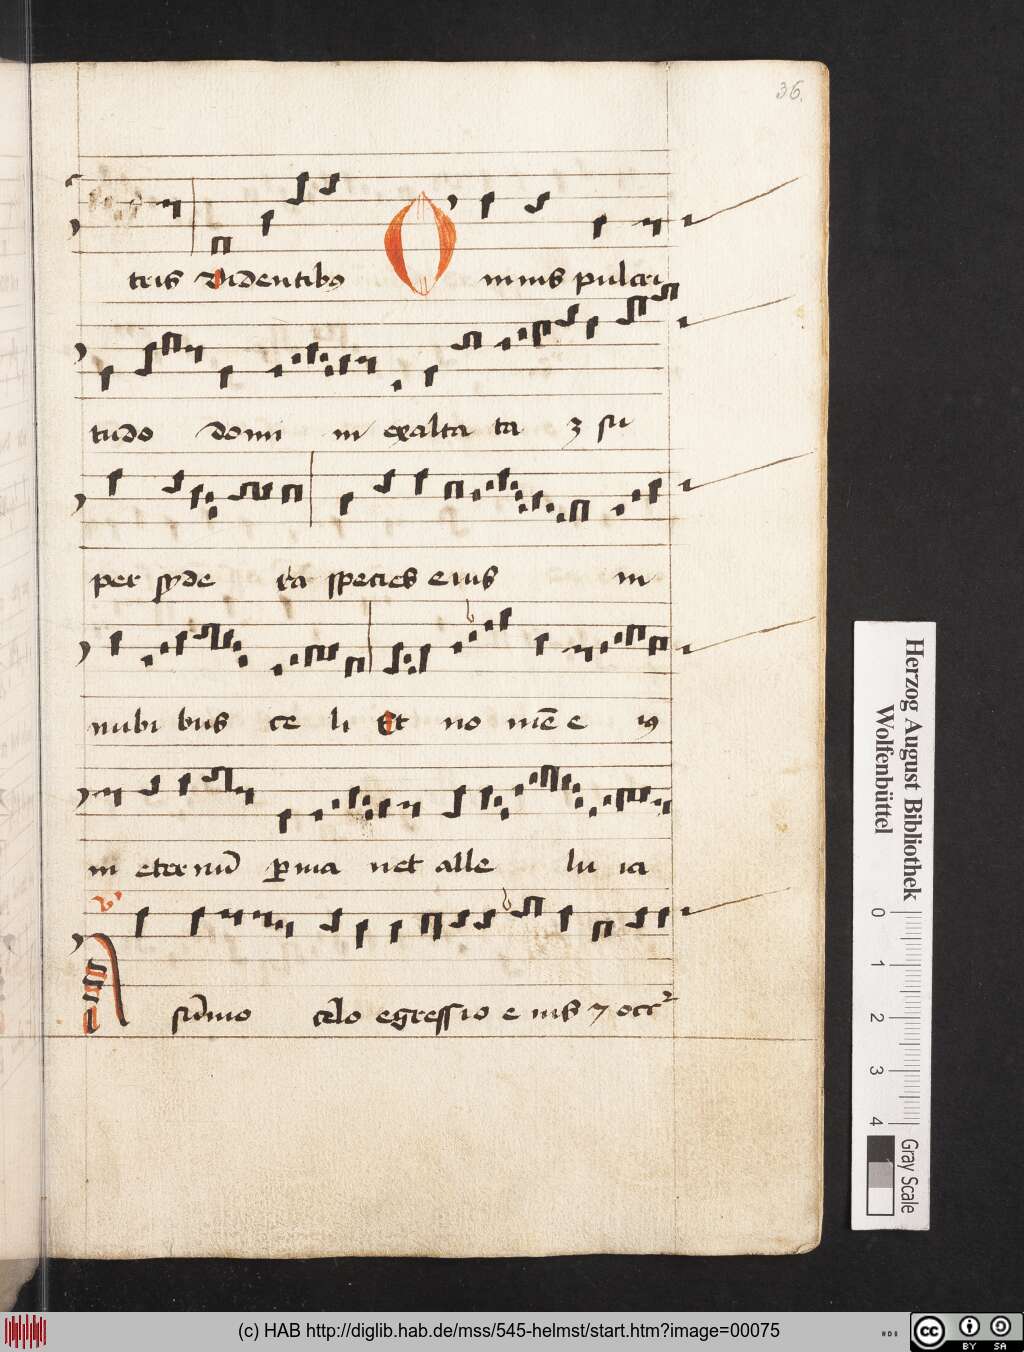 36.
tris videntibꝰ Omnis pulcri
tudo domi ni exalta ta ⁊ su
per syde ra species eius in
nubi bus ce li Et no mē e iꝰ
in eternū ꝑma net alle lu ia
A sūmo celo egressio e ius ⁊ occ
Herzog August Bibliothek
Wolfenbüttel
0 1 2 3 4
Gray Scale
(c) HAB http://diglib.hab.de/mss/545-helmst/start.htm?image=00075
cc BY SA